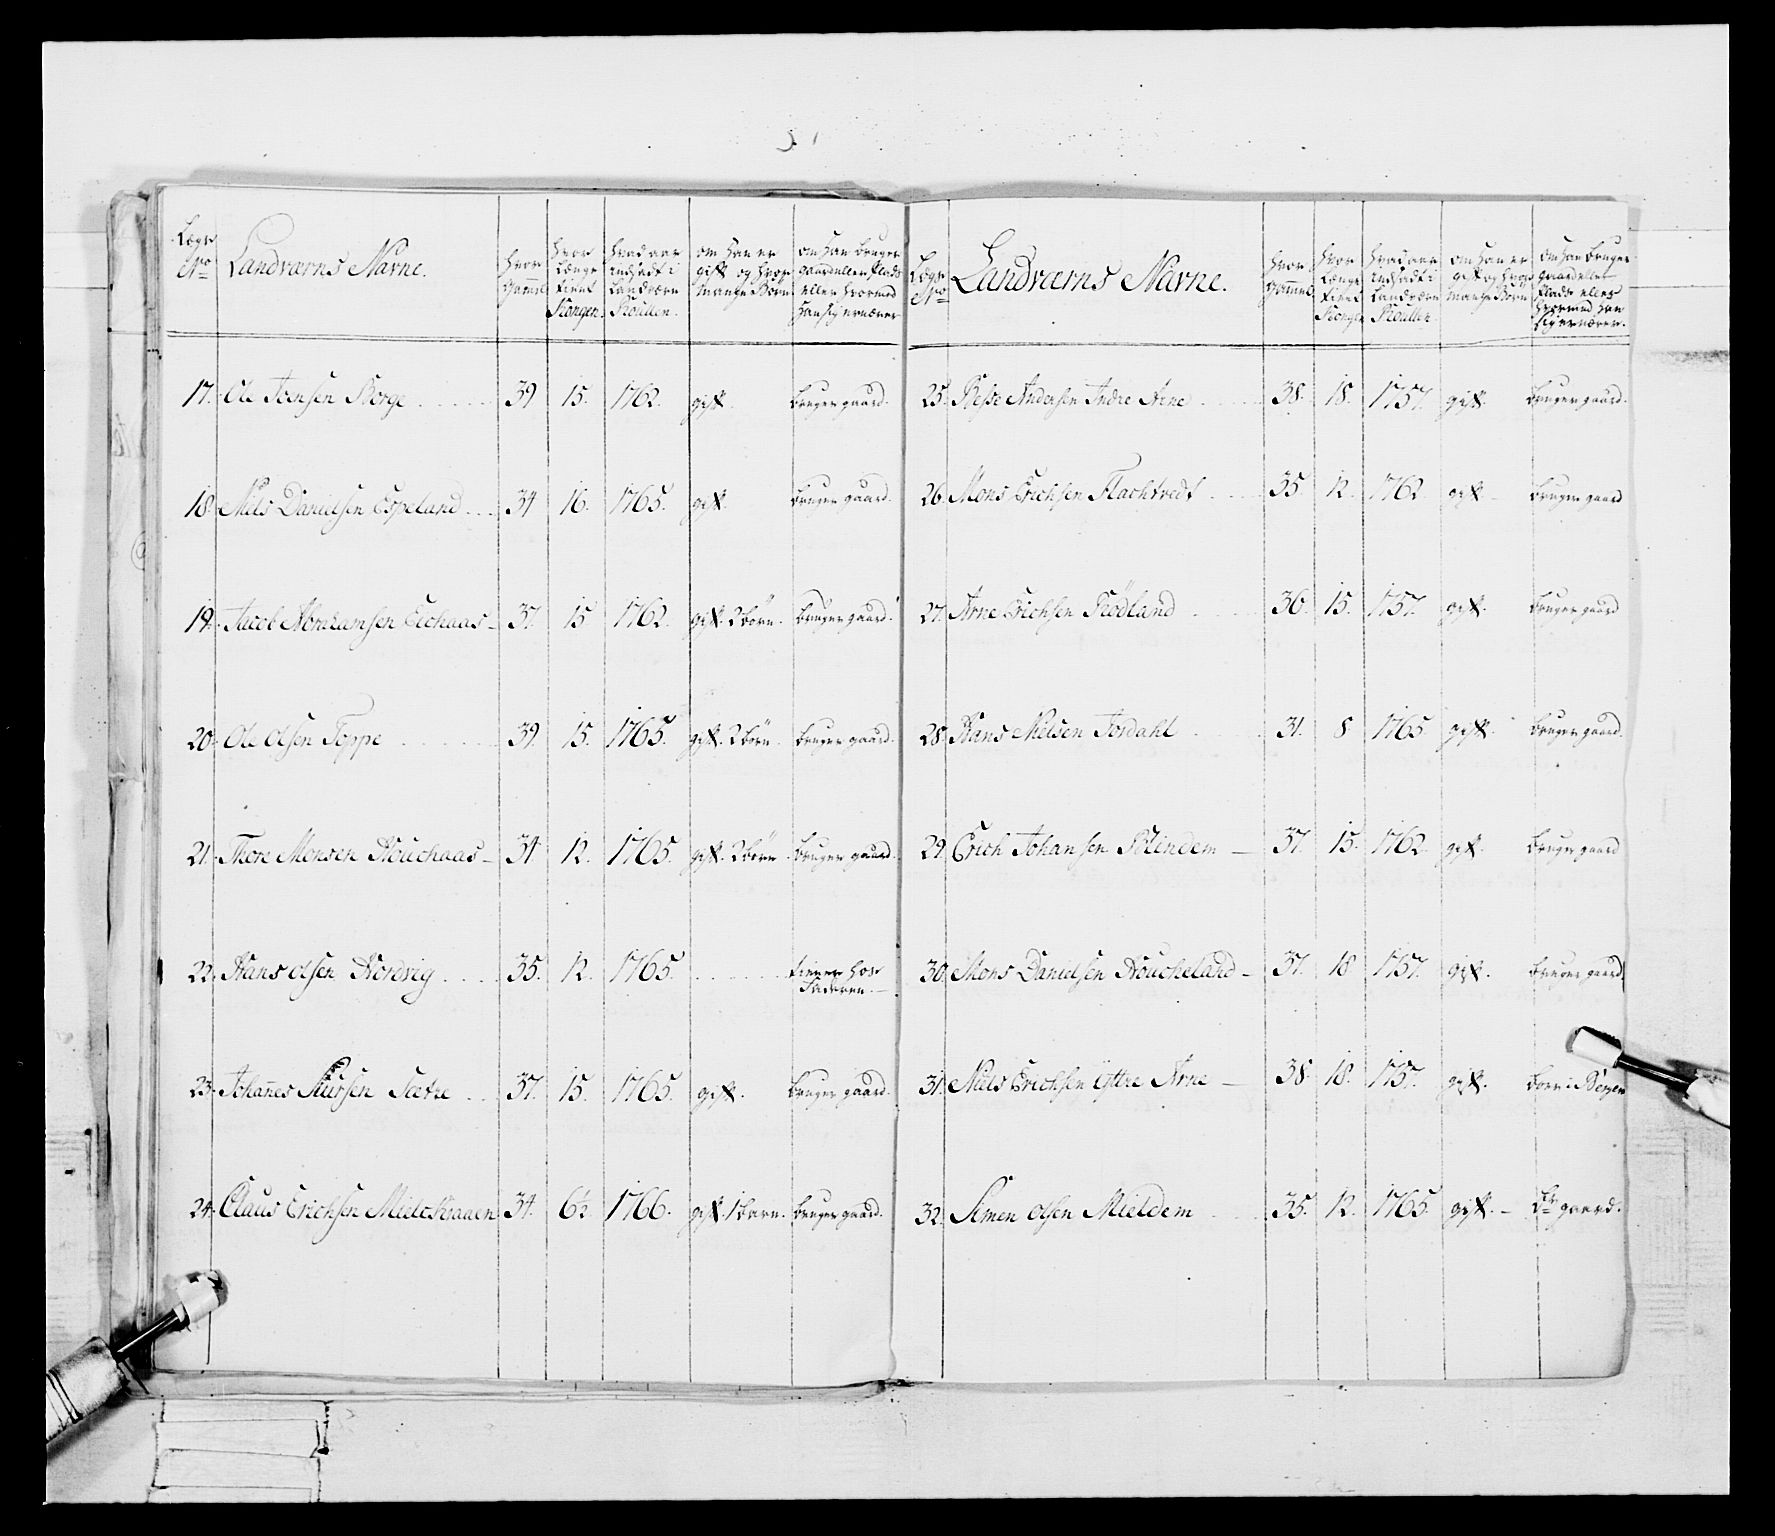 Lægs No | Landværns Navne. | hvor Gamel | hvor Længe tient Kongen. | hvad aar indsadt i Landværn Roullen. | om Han er gift og hvor mange Börn | om Han bruger gaard eller Plads eller hvormed Han sig ernærer
17. Ole Joensen Borge | 39 | 15. | 1762. | gift. | bruger gaard.
18. Nils Danielsen Espeland | 34 | 16. | 1765. | gift. | bruger gaard.
19. Jacob Abrahamsen Echaas | 37. | 15 | 1762. | gift. 2 börn. | bruger gaard.
20. Ole Olsen Toppe | 39. | 15. | 1765. | gift. 2 börn. | bruger gaard.
21. Thore Monsen Houchaas | 34 | 12. | 1765. | gift. 2 börn. | bruger gaard.
22. Hans Olsen Hordvig | 35. | 12. | 1765. | | tiener hos Faderen.
23. Johañes Siursen Sætre | 37. | 15. | 1765. | gift. | bruger gaard.
24. Claus Erichsen Mieltkraaen | 34. | 6½ | 1766. | gift. 1 barn. | bruger gaard.
Lægs No | Landværns Navne. | hvor Gam̄el | hvor Længe tient Kongen | hvad aar indsadt i Landværn Roullen. | om Han er gift og hvor mange Börn | om Han bruger gaard eller Plads eller hvormed Han sig ernærer.
25. Besse Andersen Indre Arne | 38. | 18. | 1757. | gift. | bruger gaard.
26. Mons Erichsen Flachtvedt | 35. | 12. | 1762 | gift | bruger gaard
27. Arne Erichsen Rödland | 36. | 15. | 1757. | gift. | bruger gaard
28. Hans Nielsen Jordahl | 31. | 8 | 1765. | gift. | bruger gaard.
29. Erich Johansen Blindem | 37. | 15. | 1762. | gift. | bruger gaard
30. Mons Danielsen Houcheland | 37. | 18 | 1757. | gift. | bruger gaard
31. Niels Erichsen Ÿttre Arne | 38. | 18. | 1757. | gift. | boer i Bergen
32. Simen Olsen Mieldem | 35. | 12. | 1765. | gift. | br: gaard.